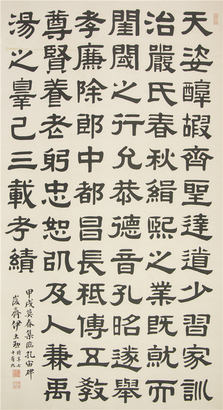 天姿醇嘏齊聖達道少習家訓
治嚴氏春秋緝熙之業既就而
閨閾之行允恭德音孔昭遂舉
孝廉除郎中都昌長祗傅五教
尊賢養老躬忠恕㠯及人兼禹
湯之辠己三載考績
甲戌莫春集臨孔宙碑
峻齋伊立勳時年七十有九